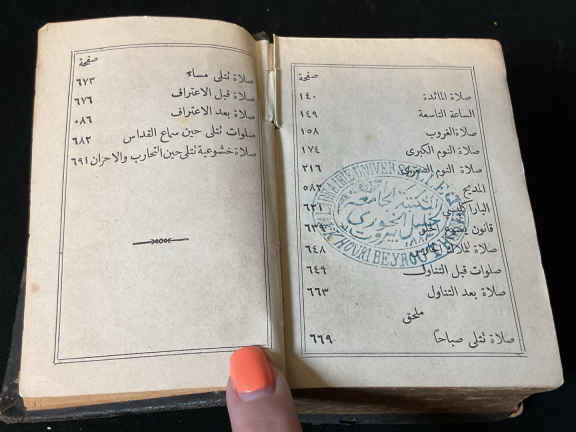 صفحة
صلاة المائدة ١٤٠
الساعة التاسعة ١٤٩
صلاة الغروب ١٥٨
صلاة النوم الكبرى ١٧٤
صلاة النوم الصغرى ٢١٦
المديح ٥٨٢
الباراكليسي ٦٢١
قانون يسوع الحلو
صلاة الملاك الحارس ٦٤٨
صلوات قبل التناول ٦٤٩
صلاة بعد التناول ٦٦٣
ملحق
صلاة تتلى صباحًا ٦٦٩
المكتبة الجامعة
خليل الخوري
بيروت
LIBRAIRIE UNIVERSELLE
KHOURI BEYROUTH
صفحة
صلاة تتلى مساءً ٦٧٣
صلاة قبل الاعتراف ٦٧٦
صلاة بعد الاعتراف ٠٨٦
صلوات تتلى حين سماع القداس ٦٨٢
صلاة خشوعية تتلى حين التجارب والاحزان ٦٩١